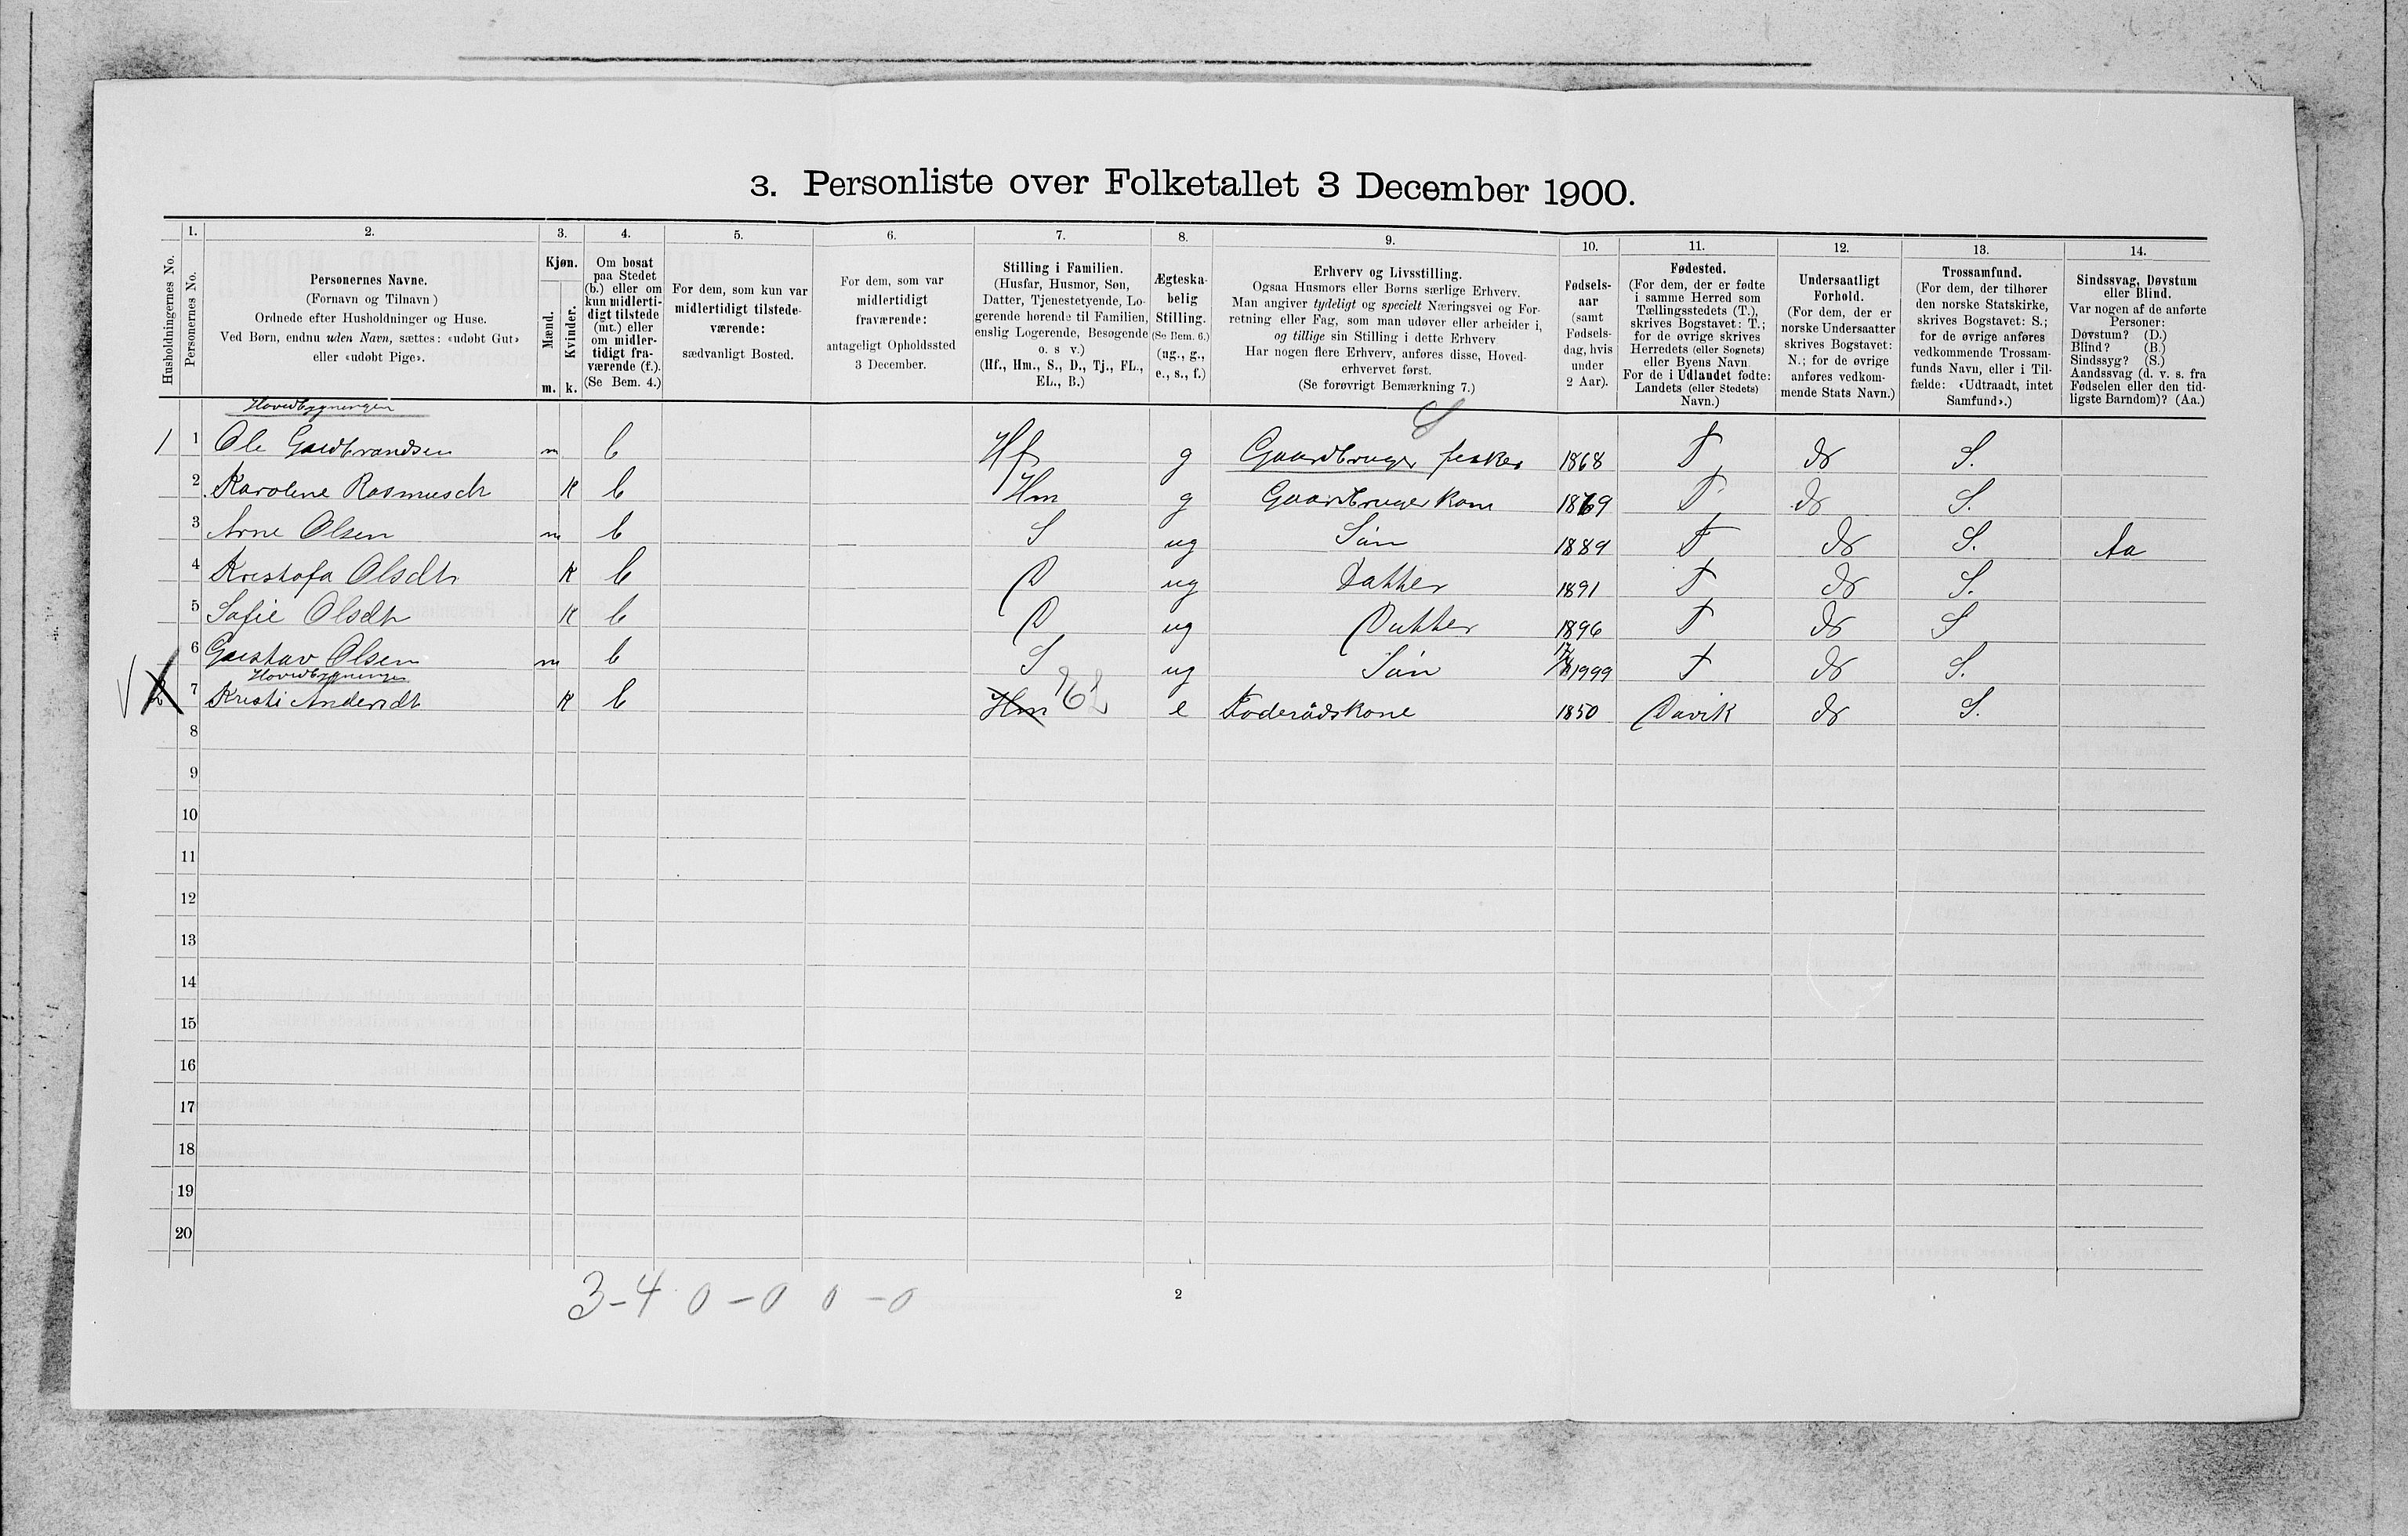 3. Personliste over Folketallet 3 December 1900.
1. 2. 3. 4. 5. 6. 7. 8. 9. 10. 11. 12. 13. 14.
Husholdningernes No.
Personernes No.
Personernes Navne.
(Fornavn og Tilnavn)
Ordnede efter Husholdninger og Huse.
Ved Børn, endnu uden Navn, sættes: «udøbt Gut»
eller «udøbt Pige».
Kjøn.
Mænd.
m.
Kvinder.
k.
Om bosat
paa Stedet
(b.) eller om
kun midlerti-
digt tilstede
(mt.) eller
om midler-
tidigt fra-
værende (f.).
(Se Bem. 4.)
For dem, som kun var
midlertidigt tilstede-
værende:
sædvanligt Bosted.
For dem, som var
midlertidigt
fraværende:
antageligt Opholdssted
3 December.
Stilling i Familien.
(Husfar, Husmor, Søn,
Datter, Tjenestetyende, Lo-
gerende hørende til Familien,
enslig Logerende, Besøgende
o. s v.)
(Hf., Hm., S., D., Tj., FL.,
EL., B.)
Ægteska-
belig
Stilling.
(Se Bem. 6.)
(ug., g.,
e., s., f.)
Erhverv og Livsstilling.
Ogsaa Husmors eller Børns særlige Erhverv.
Man angiver tydeligt og specielt Næringsvei og For-
retning eller Fag, som man udøver eller arbeider i,
og tillige sin Stilling i dette Erhverv
Har nogen flere Erhverv, anføres disse, Hoved-
erhvervet først.
(Se forøvrigt Bemærkning 7.)
Fødsels-
aar
(samt
Fødsels-
dag, hvis
under
2 Aar).
Fødested.
(For dem, der er fødte
i samme Herred som
Tællingsstedets (T.),
skrives Bogstavet: T.;
for de øvrige skrives
Herredets (eller Sognets)
eller Byens Navn.
For de i Udlandet fødte:
Landets (eller Stedets)
Navn.)
Undersaatligt
Forhold.
(For dem, der er
norske Undersaatter
skrives Bogstavet:
N.; for de øvrige
anføres vedkom-
mende Stats Navn.)
Trossamfund.
(For dem, der tilhører
den norske Statskirke,
skrives Bogstavet: S.;
for de øvrige anføres
vedkommende Trossam-
funds Navn, eller i Til-
fælde: «Udtraadt, intet
Samfund».)
Sindssvag, Døvstum
eller Blind.
Var nogen af de anførte
Personer:
Døvstum? (D.)
Blind? (B.)
Sindssyg? (S.)
Aandssvag (d. v. s. fra
Fødselen eller den tid-
ligste Barndom)? (Aa.)
Hovedbygningen
1 1 Ole Guldbrandsen m b Hf g Gaardbruger fisker 1868 T N S.
2 Karoline Rasmusdt K b Hm g Gaardbrugerkone 1869 T N S.
3 Arne Olsen m b S ug Søn 1889 T N S. Aa
4 Kristofa Olsdtr K b D ug Datter 1891 T N S.
5 Sofie Olsdtr K b D ug Datter 1896 T N S
6 Gustav Olsen m b S ug Søn T N S.
Hovedbygningen
7 Kristi Andersdt K b Hm e Foderådskone 1850 Davik N S.
8
9
10
11
12
13
14
15
16
17
18
19
20
3-4 0-0 0-0
2